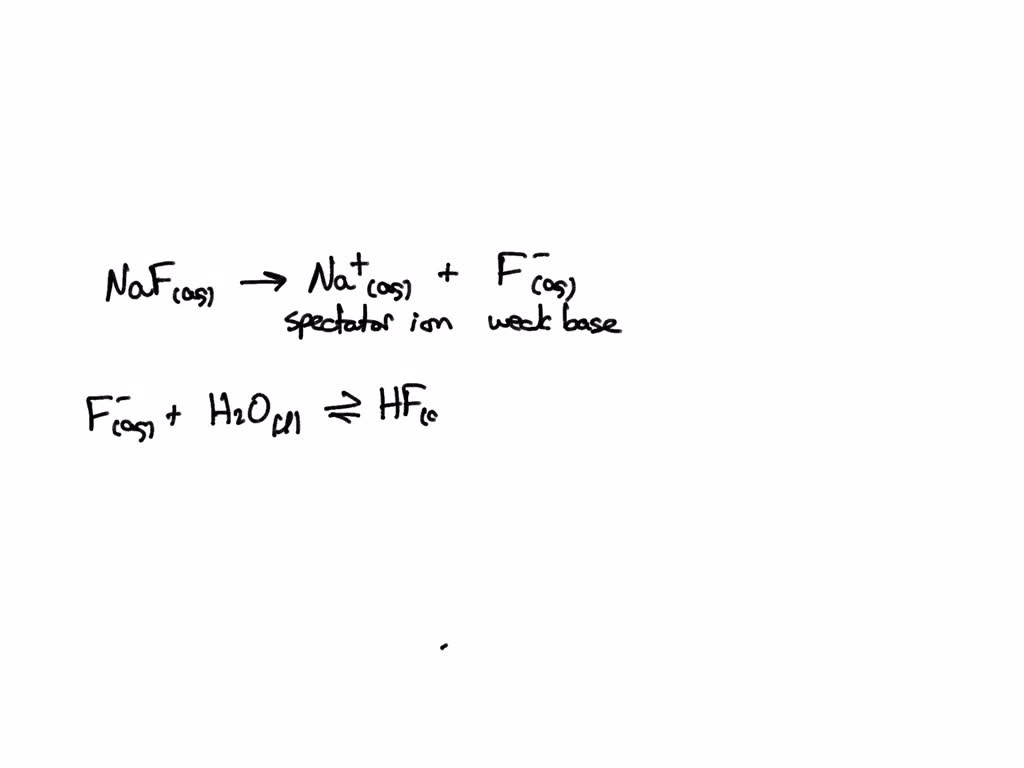 NaF(aq) → Na⁺(aq) + F⁻(aq)
spectator ion weak base
F⁻(aq) + H₂O(l) ⇌ HF(a